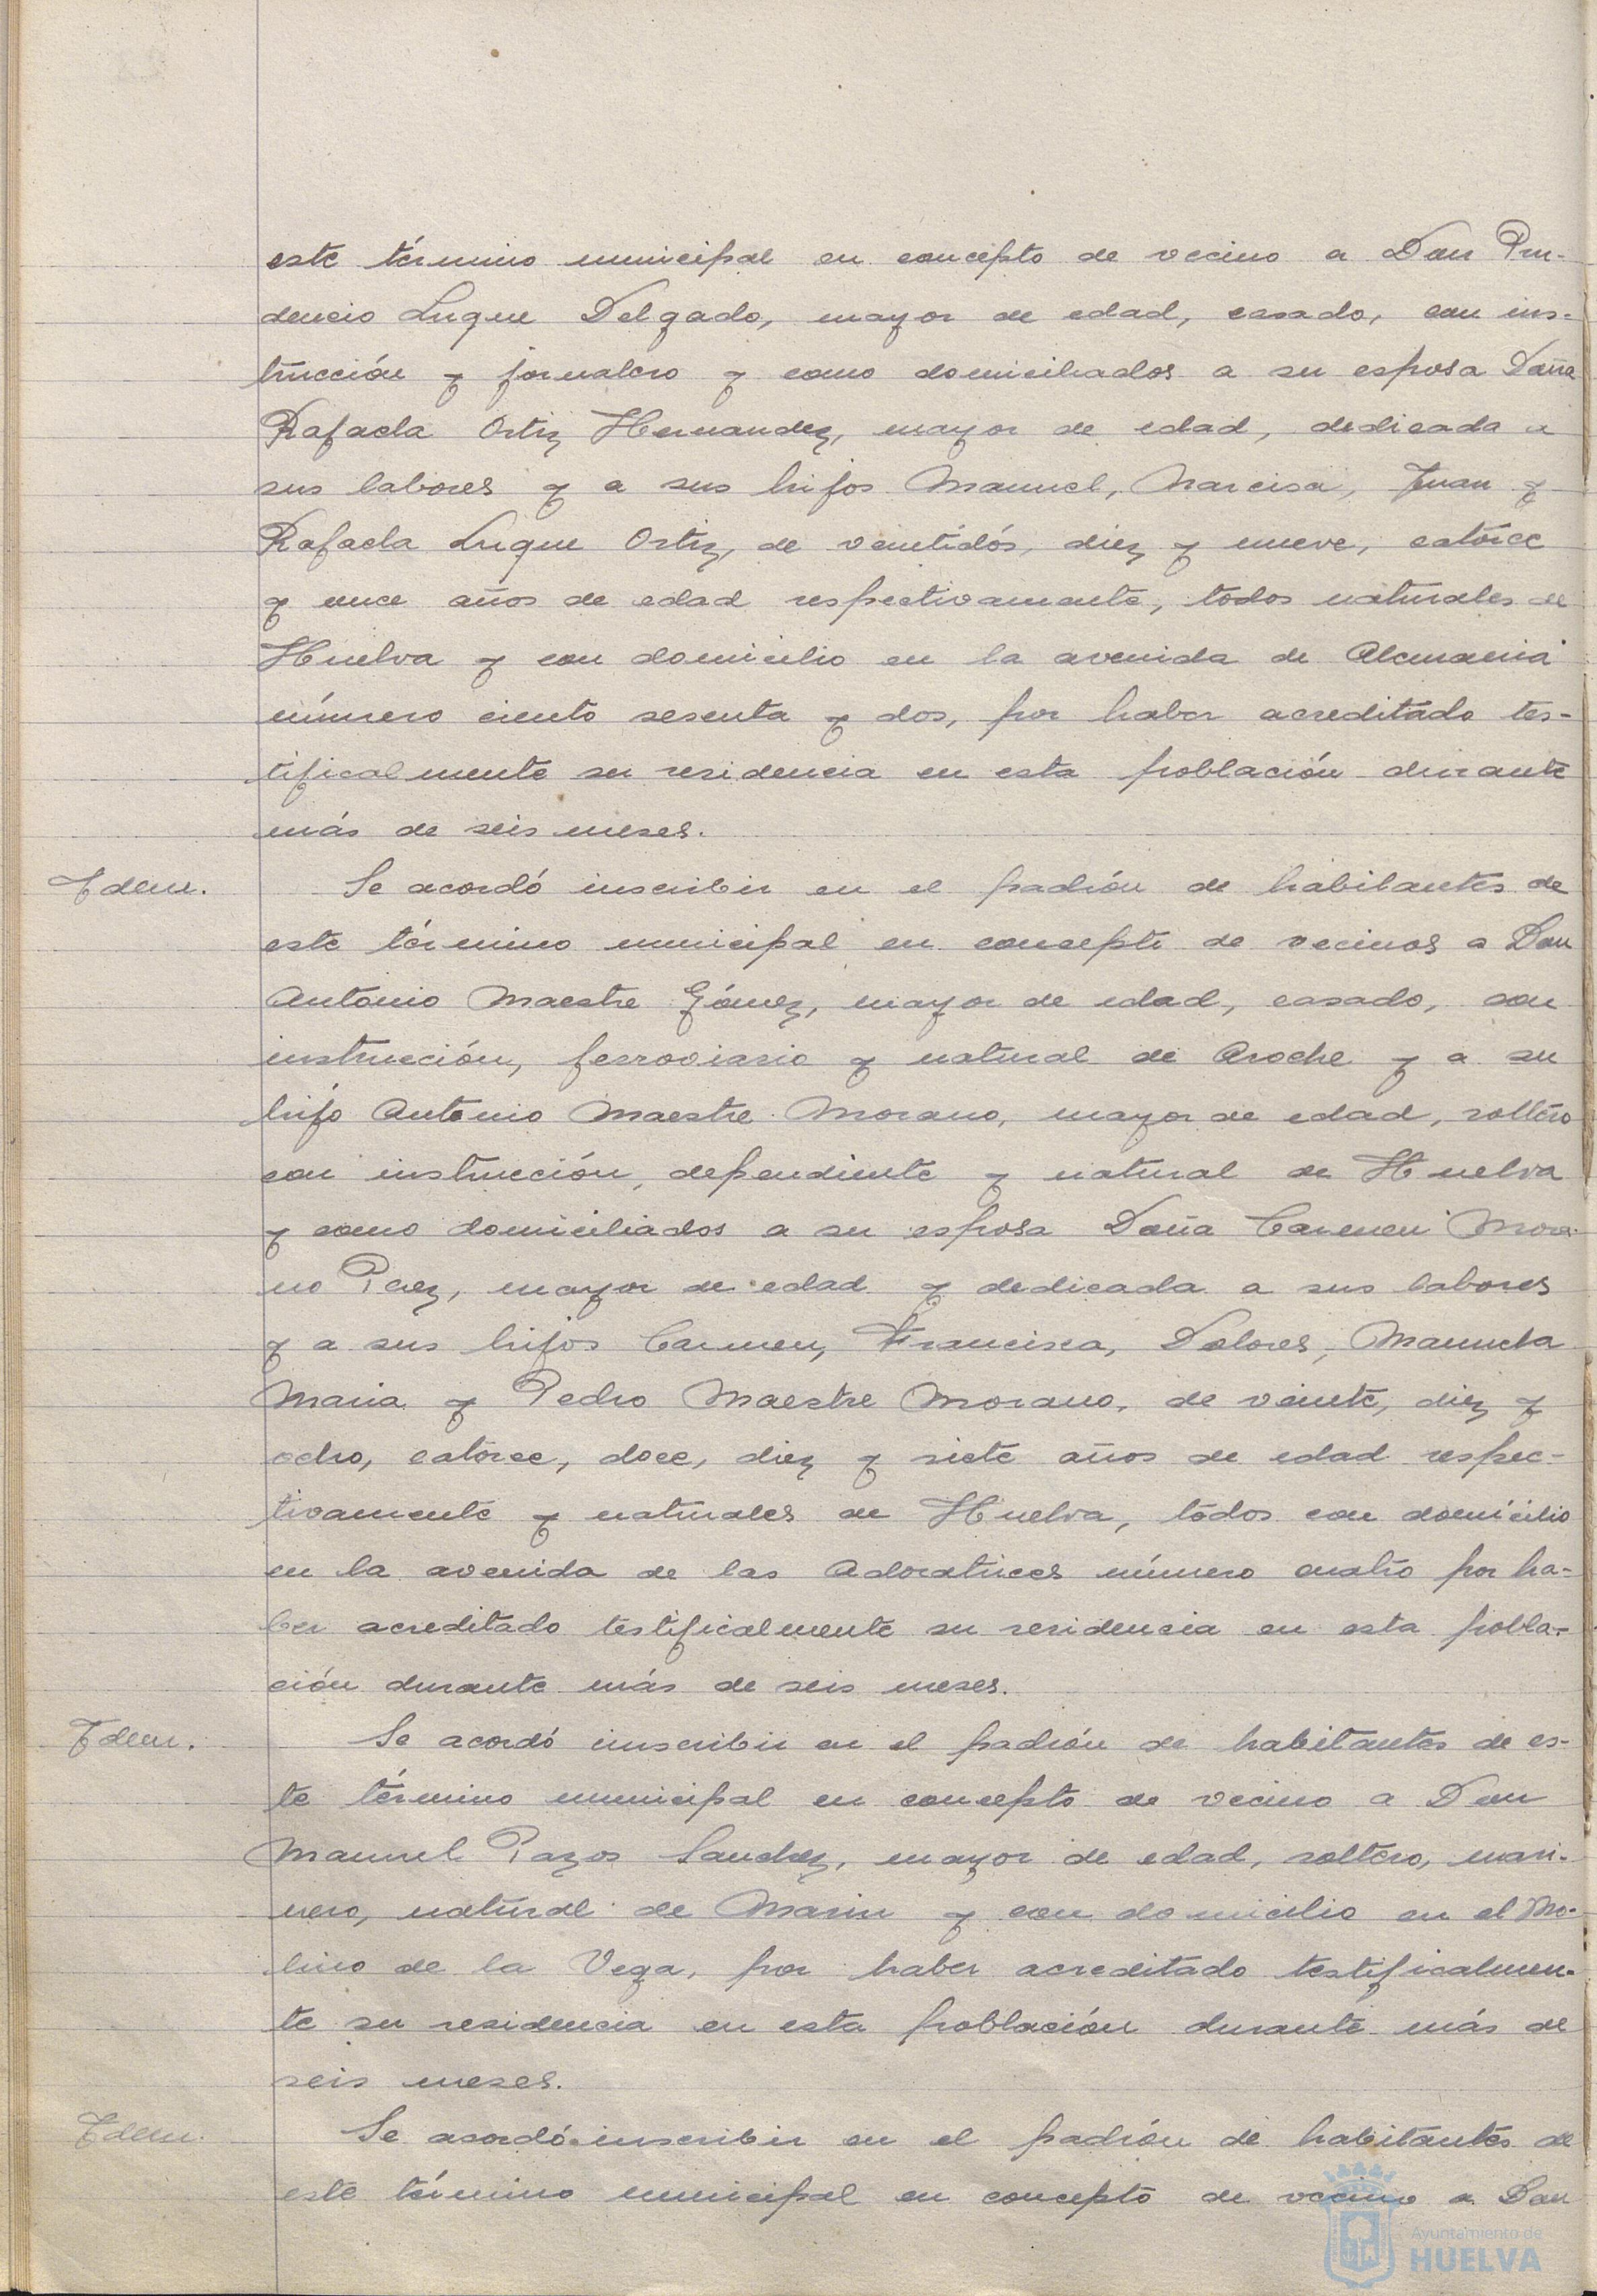 este término municipal en concepto de vecino a Don Pru-
dencio Luque Delgado, mayor de edad, casado, con ins-
trucción y jornalero y como domiciliados a su esposa Doña
Rafaela Ortiz Hernandez, mayor de edad, dedicada a
sus labores y a sus hijos Manuel, Narcisa, Juan y
Rafaela Luque Ortiz, de veintidós, diez y nueve, catorce
y once años de edad respectivamente, todos naturales de
Huelva y con domicilio en la avenida de Alemania
número ciento sesenta y dos, por haber acreditado tes-
tificalmente su residencia en esta población durante
más de seis meses.
Idem. Se acordó inscribir en el padrón de habitantes de
este término municipal en concepto de vecinos a Don
Antonio Maestre Gómez, mayor de edad, casado, con
instrucción, ferroviario y natural de Aroche y a su
hijo Antonio Maestre Morano, mayor de edad, soltero
con instrucción, dependiente y natural de Huelva
y como domiciliados a su esposa Doña Carmen Mora-
no Paez, mayor de edad y dedicada a sus labores
y a sus hijos Carmen, Francisca, Dolores, Manuela
Maria y Pedro Maestre Morano, de veinte, diez y
ocho, catorce, doce, diez y siete años de edad respec-
tivamente y naturales de Huelva, todos con domicilio
en la avenida de las Adoratrices número cuatro por ha-
ber acreditado testificalmente su residencia en esta pobla-
ción durante más de seis meses.
Idem. Se acordó inscribir en el padrón de habitantes de es-
te término municipal en concepto de vecino a Don
Manuel Pazos Sanchez, mayor de edad, soltero, mari-
nero, natural de Marin y con domicilio en el Mo-
lino de la Vega, por haber acreditado testificalmen-
te su residencia en esta población durante más de
seis meses.
Idem. Se acordó inscribir en el padrón de habitantes de
este término municipal en concepto de vecino a Don
Ayuntamiento de
HUELVA